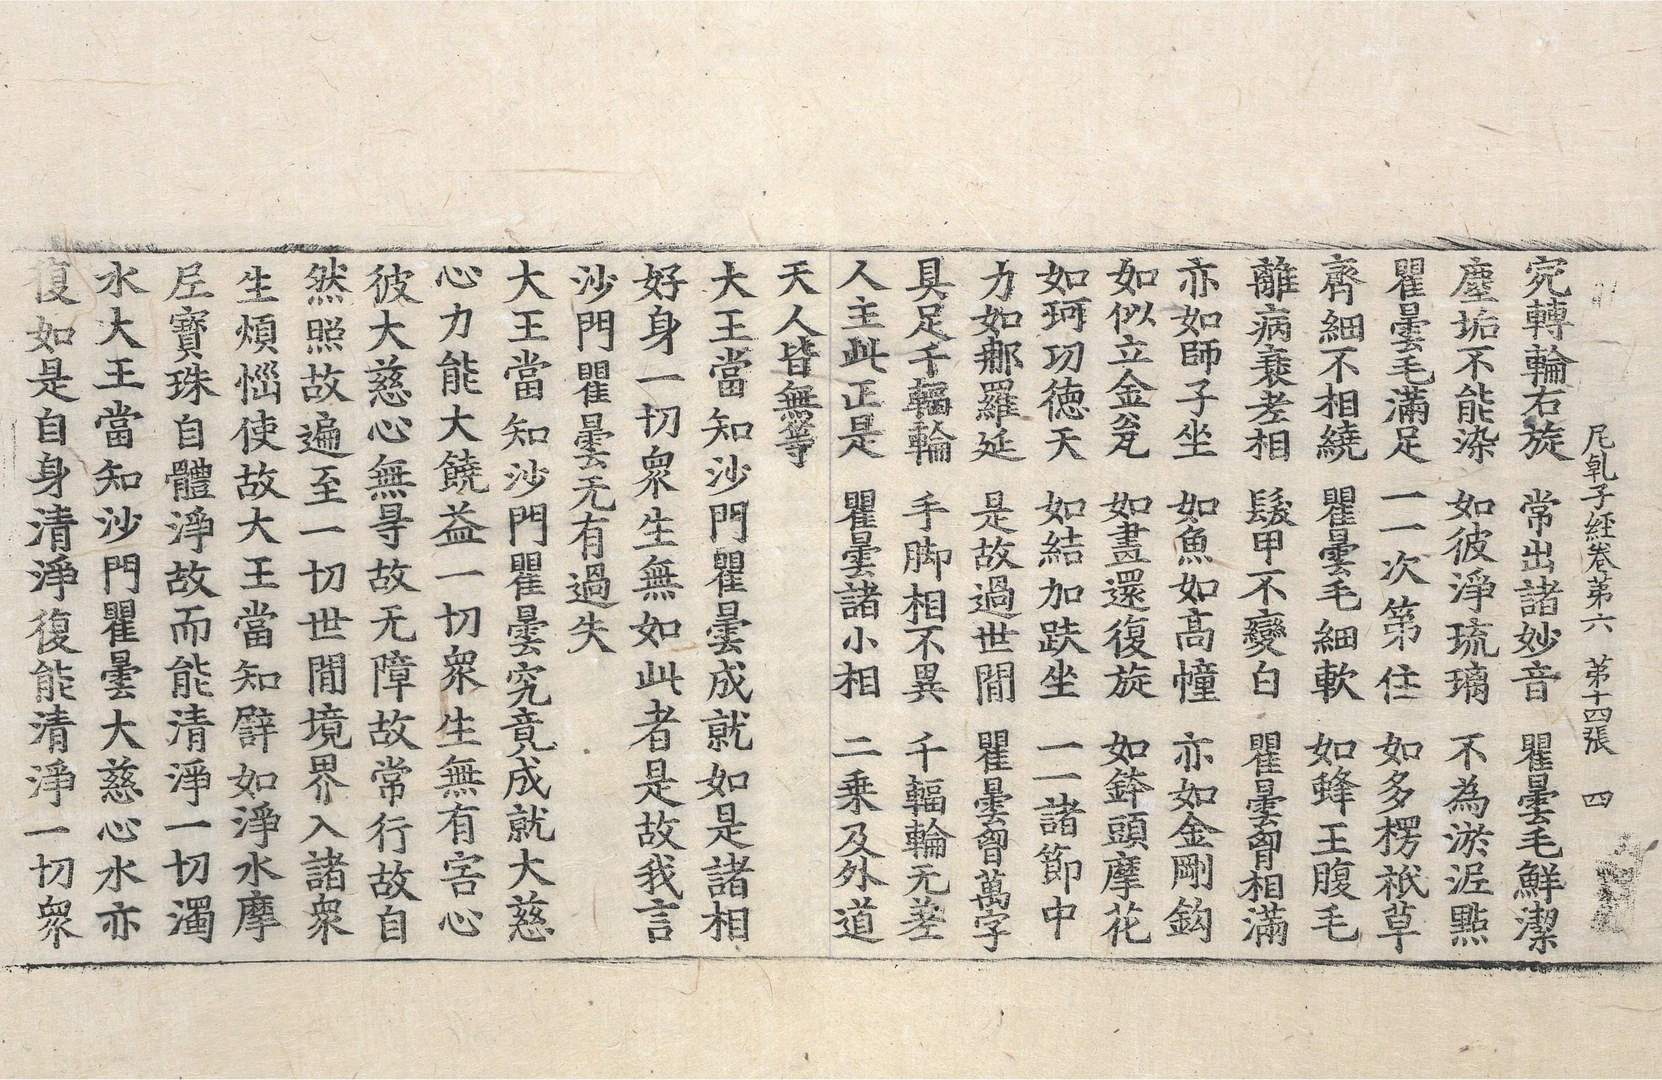 尼乹子経卷第六　第十四張　四
宛轉輪右旋　常出諸妙音　瞿曇毛鮮潔
塵垢不能染　如彼淨琉璃　不為淤泥點
瞿曇毛滿足　一一次第住　如多楞祇草
齊細不相繞　瞿曇毛細軟　如蜂王腹毛
離病衰老相　髮甲不變白　瞿曇𦙄相滿
亦如師子坐　如魚如高幢　亦如金剛鈎
如似立金瓮　如畫還復旋　如鉢頭摩花
如珂功徳天　如結加趺坐　一一諸節中
力如郍羅延　是故過世間　瞿曇𦙄萬字
具足千輻輪　手脚相不異　千輻輪无差
人主此正是　瞿曇諸小相　二乗及外道
天人皆無等
大王當知沙門瞿曇成就如是諸相
好身一切衆生無如此者是故我言
沙門瞿曇无有過失
大王當知沙門瞿曇究竟成就大慈
心力能大饒益一切衆生無有害心
彼大慈心無㝵故无障故常行故自
然照故遍至一切世間境界入諸衆
生煩惱使故大王當知譬如淨水摩
尼寶珠自體淨故而能清淨一切濁
水大王當知沙門瞿曇大慈心水亦
復如是自身清淨復能清淨一切衆